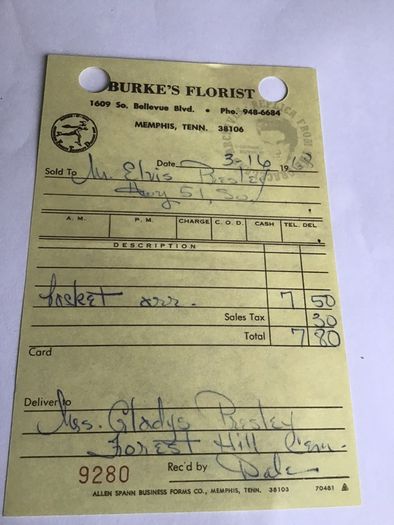 BURKE'S FLORIST
1609 So. Bellevue Blvd. • Pho. 948-6684
MEMPHIS, TENN. 38106
Date 3-16 1968
Sold To Mr. Elvis Presley
Hwy 51, So.
A. M. P. M. CHARGE C. O. D. CASH TEL. DEL.
DESCRIPTION
Locket arr. 7 50
Sales Tax 30
Total 7 80
Card
Deliver to
Mrs. Gladys Presley
Forest Hill Cem.
9280 Rec'd by Dale
ALLEN SPANN BUSINESS FORMS CO., MEMPHIS, TENN. 38103 70481